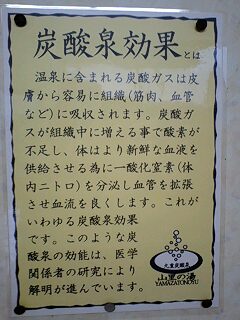 炭酸泉効果とは
温泉に含まれる炭酸ガスは皮
膚から容易に組織(筋肉、血管
など)に吸収されます。炭酸ガ
スが組織中に増える事で酸素が
不足し、体はより新鮮な血液を
供給させる為に一酸化窒素(体
内ニトロ)を分泌し血管を拡張
させ血流を良くします。これが
いわゆる炭酸泉効果
です。このような炭
酸泉の効能は、医学
関係者の研究により
解明が進んでいます。
山里の湯
YAMAZATONOYU